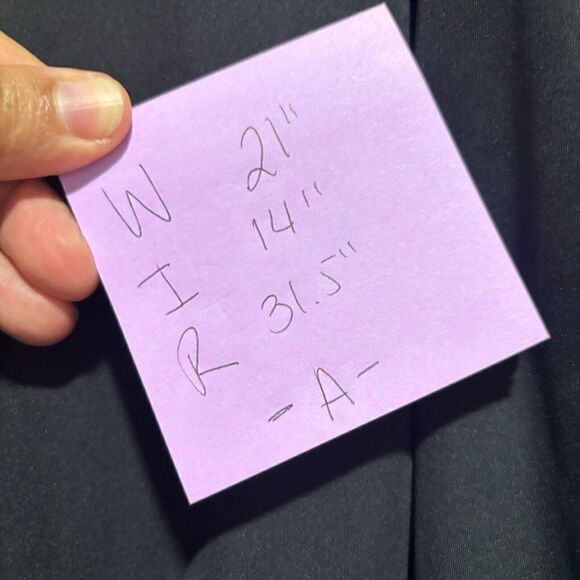 W 21"
I 14"
R 31.5"
- A -